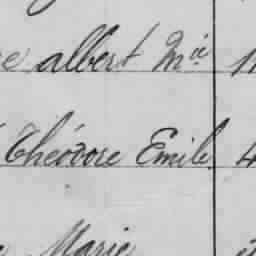 albert Mie
Théodore Emile 4
Marie